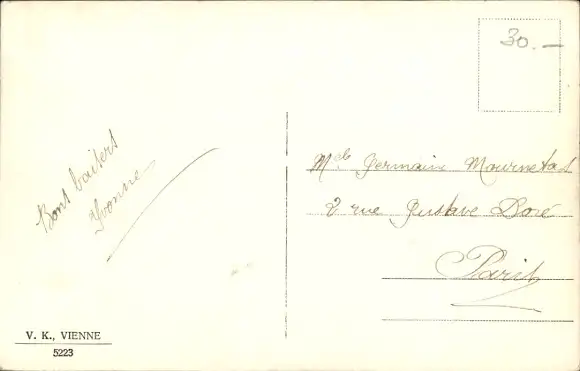 30.—
Bons baisers
Yvonne
Mlle Germaine
2 rue Gustave Doré
Paris
V. K., VIENNE
5223